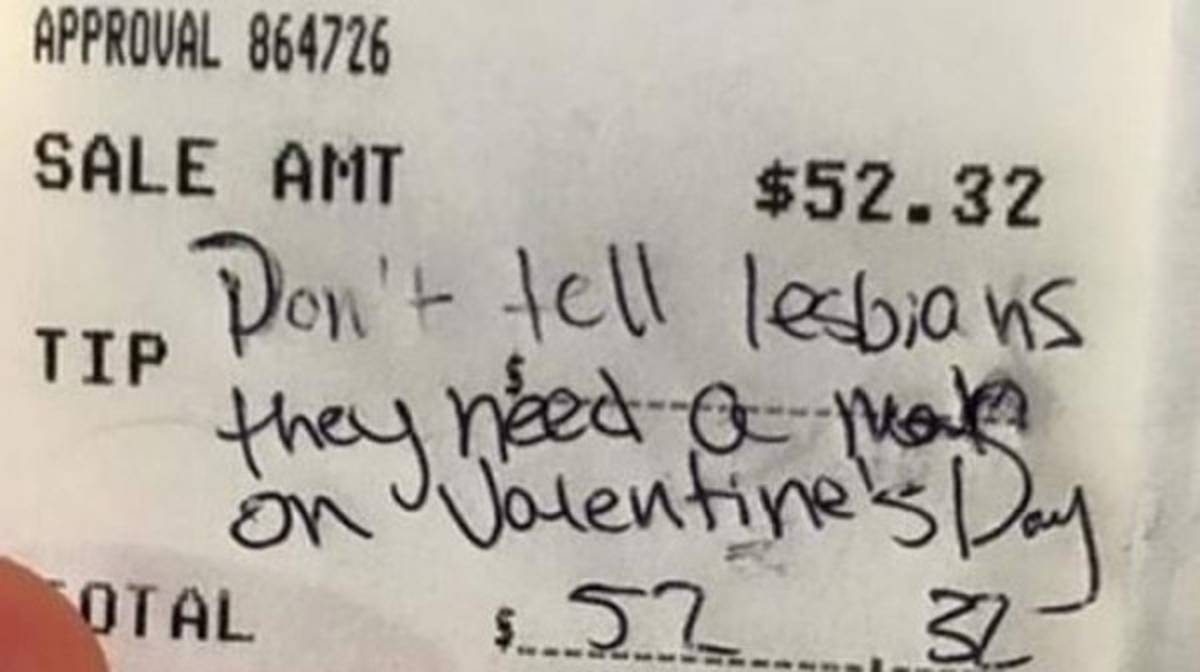 APPROVAL 864726
SALE AMT $52.32
Don't tell lesbians
TIP $
they need a
on Valentine's Day
OTAL $ 52 32